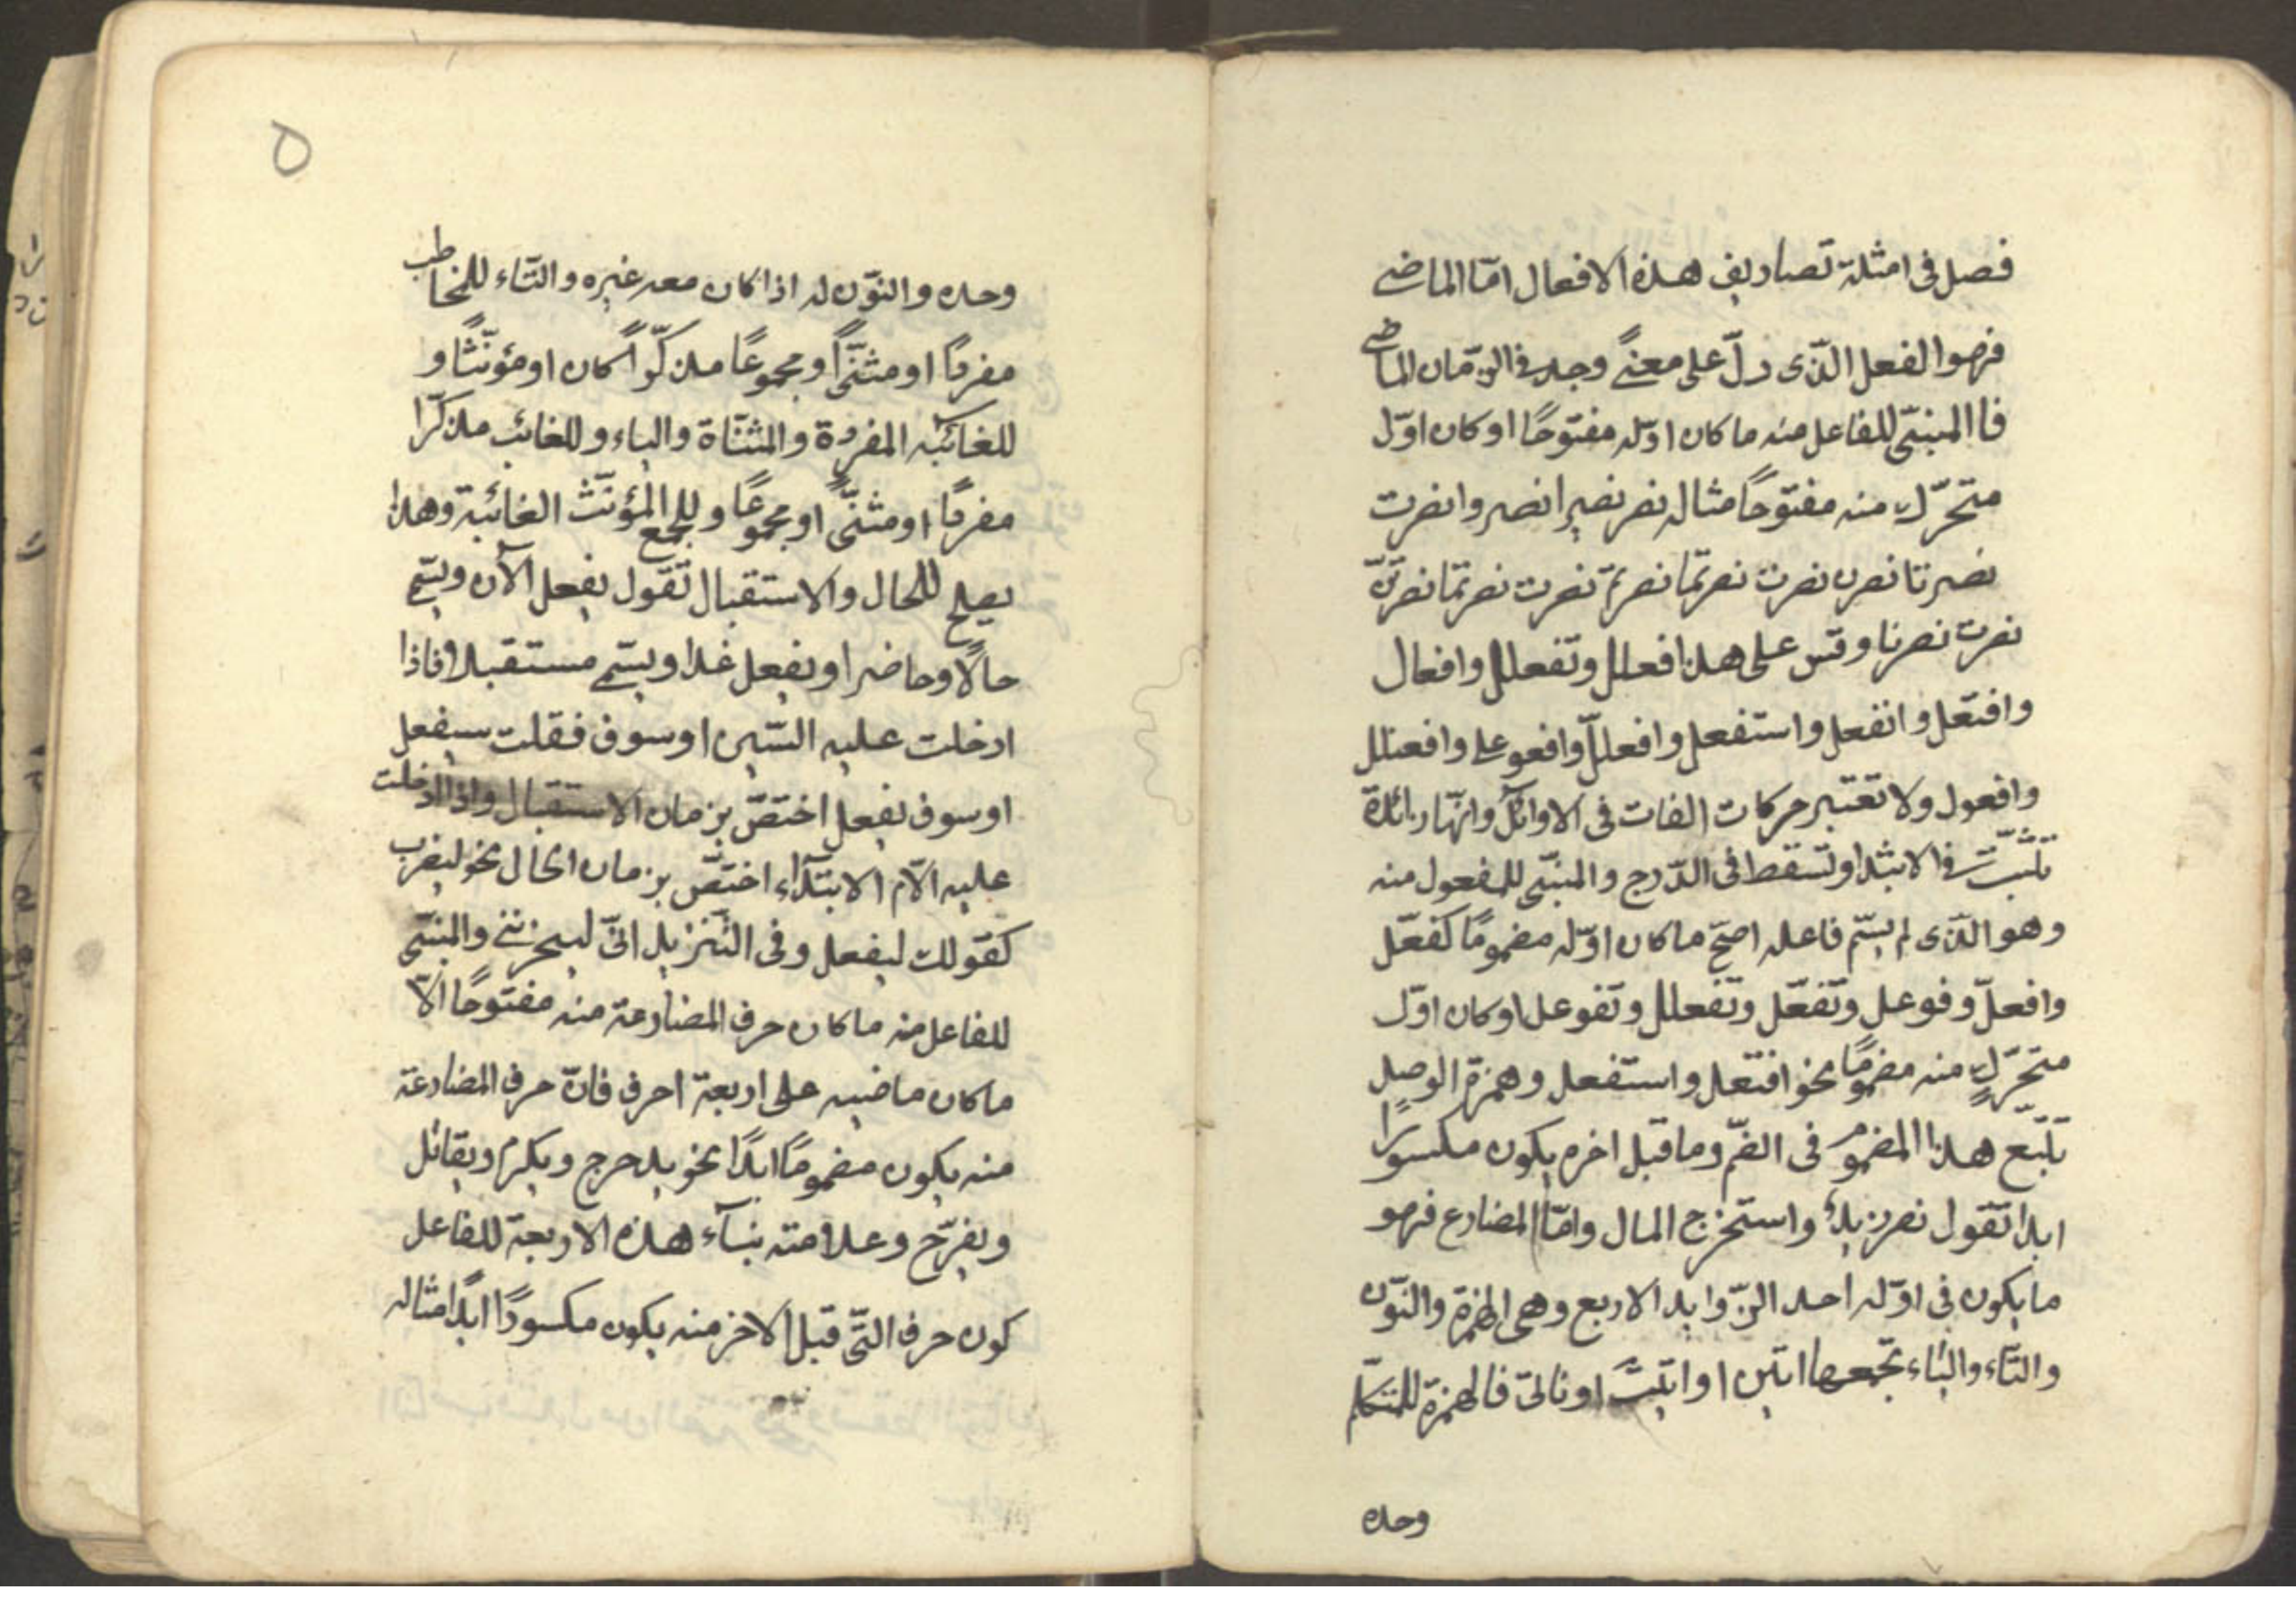 فصل فى امثلة تصاريف هذه الافعال امّا الماضى
فهو الفعل الذّى دلّ على معنىً وجد فى الزّمان الماضى
فا المبنىّ للفاعل منه ما كان اوّله مفتوحًا او كان اوّل
متحرّك منه مفتوحًا مثاله نصر نصرا نصروا نصرت
نصرتا نصرن نصرت نصرتما نصرتم نصرت نصرتما نصرتنّ
نصرت نصرنا وقس على هذا افعلل وتفعلل وافعال
وافتعل وانفعل واستفعل وافعللّ وافعوعل وافعنلل
وافعول ولا تعتبر حركات الفات فى الاوائل وانّها زائدة
تثبت فى الابتدا وتسقط فى الدّرج والمبنىّ للمفعول منه
وهو الذّى لم يسّم فاعله اصحّ ما كان اوّله مضمومًا كفعّل
وافعلّ وفوعل وتفعّل وتفعلل وتفوعل او كان اوّل
متحرّكٍ منه مضمومًا نحو افتعل واستفعل وهمزة الوصل
تتّبع هذا المضموم فى الضّم وما قبل اخره يكون مكسورًا
ابدا تقول نصر زيدٌ واستخرج المال وامّا المضارع فهو
ما يكون فى اوّله احد الزّوايد الاربع وهى الهمزة والنّون
والتّاء والياء تجمعها اتين او اتيت او ناتى فالهمزة للمتكلّم
وحده
٥
وحده والنّون له اذا كان معه غيره والتّاء للمخاطب
مفردًا او مثنّىً او مجموعًا مذكّرًا كان او مؤنّثًا و
للغائبه المفردة والمثنّاة والياء وللغائب مذكّرا
مفردًا او مثنّىً او مجموعًا وللجمع المؤنّث الغائبة وهذا
يصلح للحال والاستقبال تقول يفعل الآن ويسّمى
حالًا وحاضرا ويفعل غدا ويسّمى مستقبلا فاذا
ادخلت عليه السّين او سوف فقلت سيفعل
او سوف يفعل اختصّ بزمان الاستقبال واذا ادخلت
عليه الّام الابتداء اختصّ بزمان الحال نحو ليضرب
كقولك ليفعل وفى التّنزيل انّى ليحزننى والمبنىّ
للفاعل منه ما كان حرف المضارعة منه مفتوحًا الّا
ما كان ماضيه على اربعة احرف فانّ حرف المضارعة
منه يكون مضمومًا ابدًا نحو يدحرج ويكرم ويقاتل
ويفرّح وعلامته بناء هذه الاربعة للفاعل
كون حرف التّى قبل الاخر منه يكون مكسورًا ابدًا مثاله